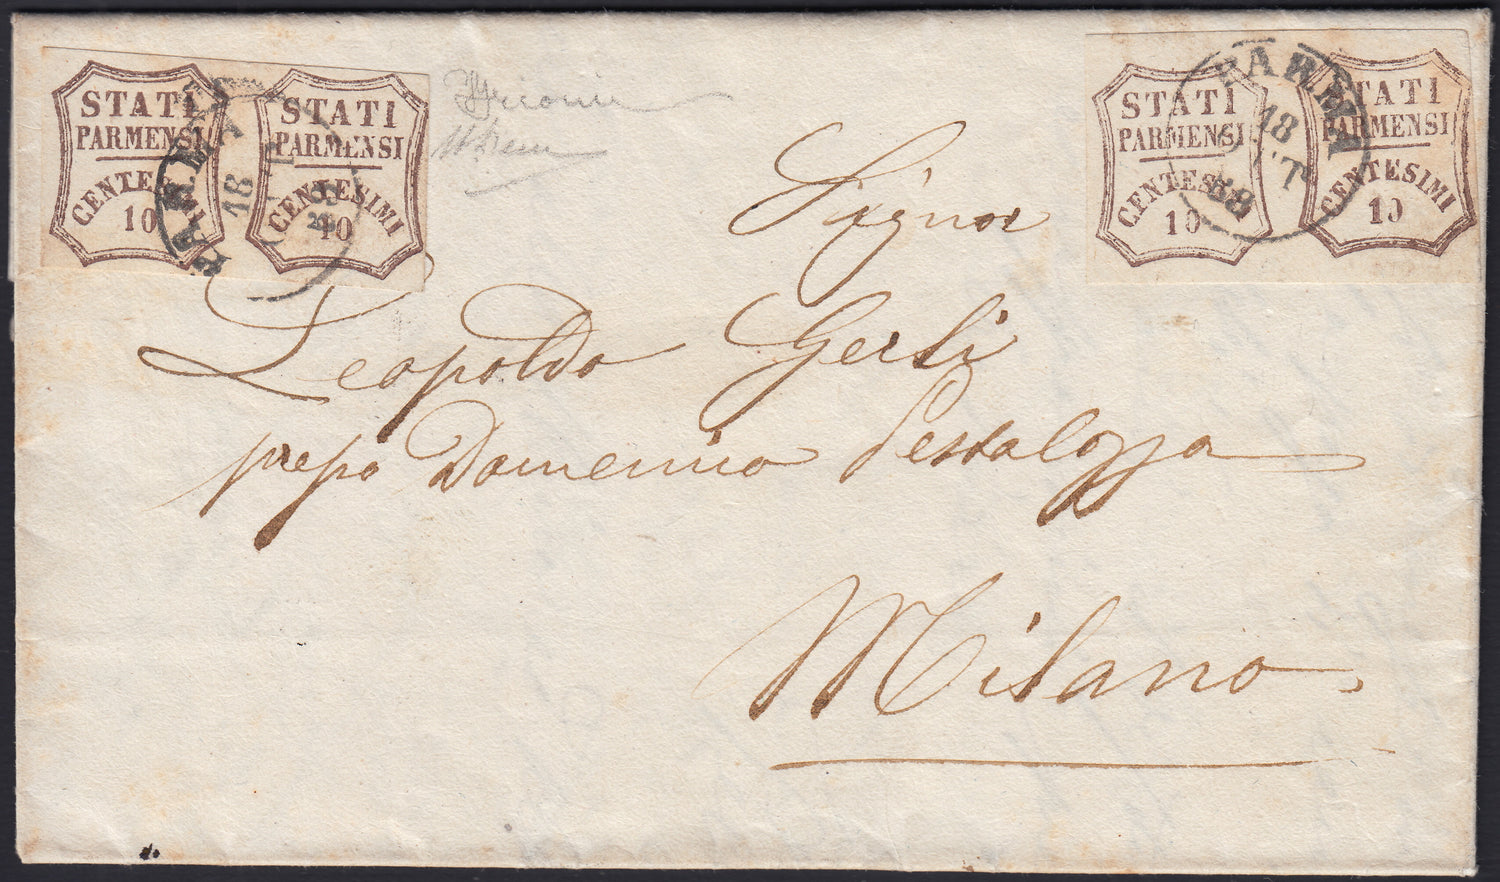 STATI
PARMENSI
CENTESIMI
10
STATI
PARMENSI
CENTESIMI
10
PARMA
18
STATI
PARMENSI
CENTESIMI
10
STATI
PARMENSI
CENTESIMI
10
PARMA
18
Signor
Leopoldo Gerli
prepo Domenico Pestalozza
Milano